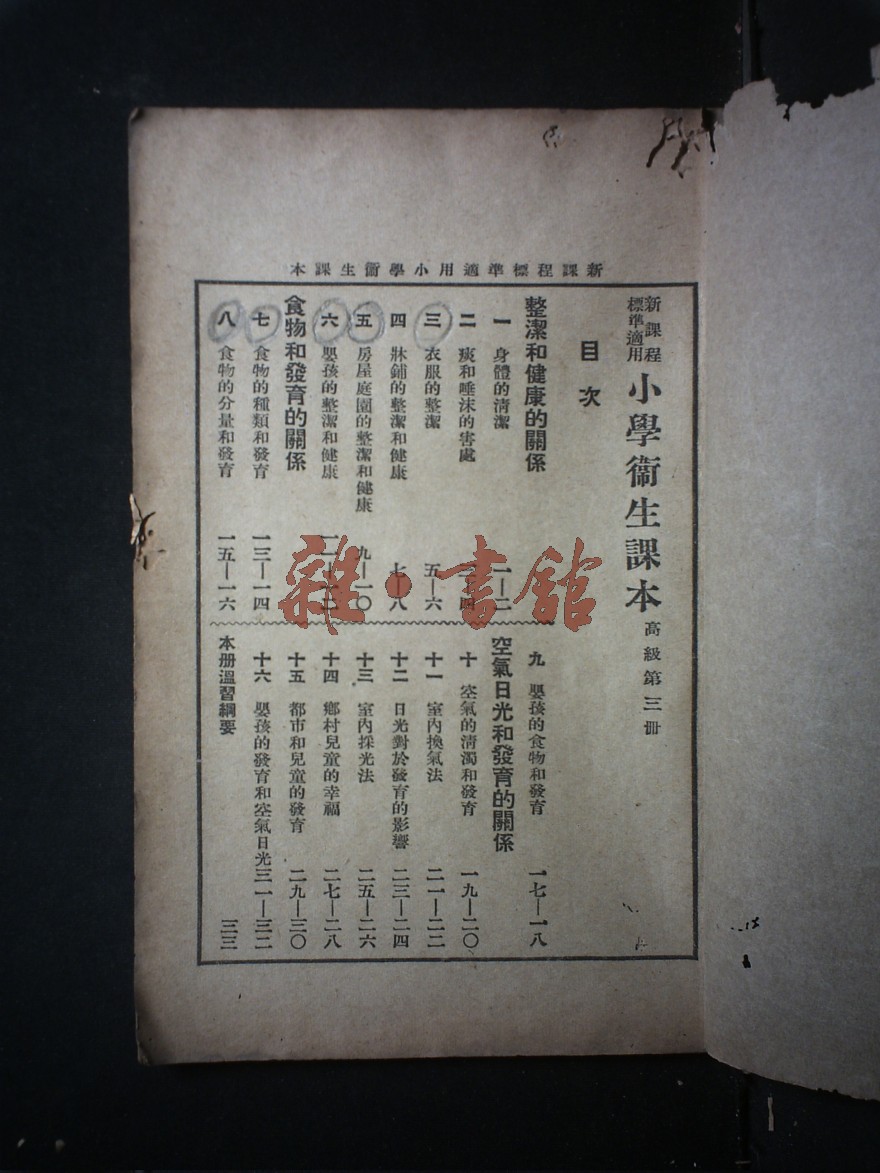 新課程標準適用小學衞生課本
新課程
標準適用
小學衞生課本
高級第三册
目次
整潔和健康的關係
一 身體的清潔 一—二
二 痰和唾沫的害處 三—四
三 衣服的整潔 五—六
四 牀鋪的整潔和健康 七—八
五 房屋庭園的整潔和健康 九—一〇
六 嬰孩的整潔和健康 一一—一二
食物和發育的關係
七 食物的種類和發育 一三—一四
八 食物的分量和發育 一五—一六
九 嬰孩的食物和發育 一七—一八
空氣日光和發育的關係
十 空氣的清濁和發育 一九—二〇
十一 室內換氣法 二一—二二
十二 日光對於發育的影響 二三—二四
十三 室內採光法 二五—二六
十四 鄉村兒童的幸福 二七—二八
十五 都市和兒童的發育 二九—三〇
十六 嬰孩的發育和空氣日光 三一—三二
本册溫習綱要 三三
雜·書館